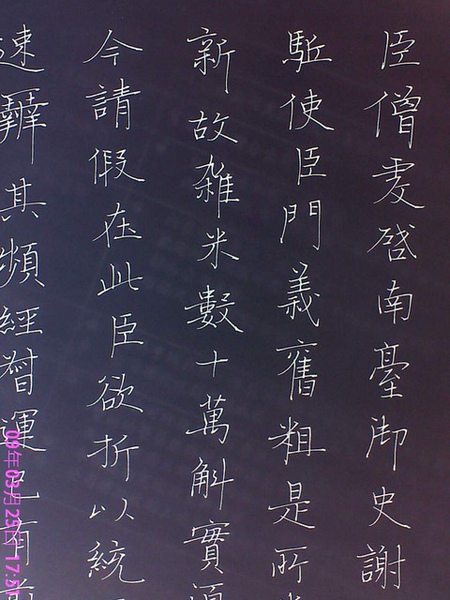 臣僧虔啓南臺御史謝
駈使臣門義舊粗是所
新故雑米數十萬斛實
今請假在此臣欲折以統
速辦其頻經督運已有
09年03月